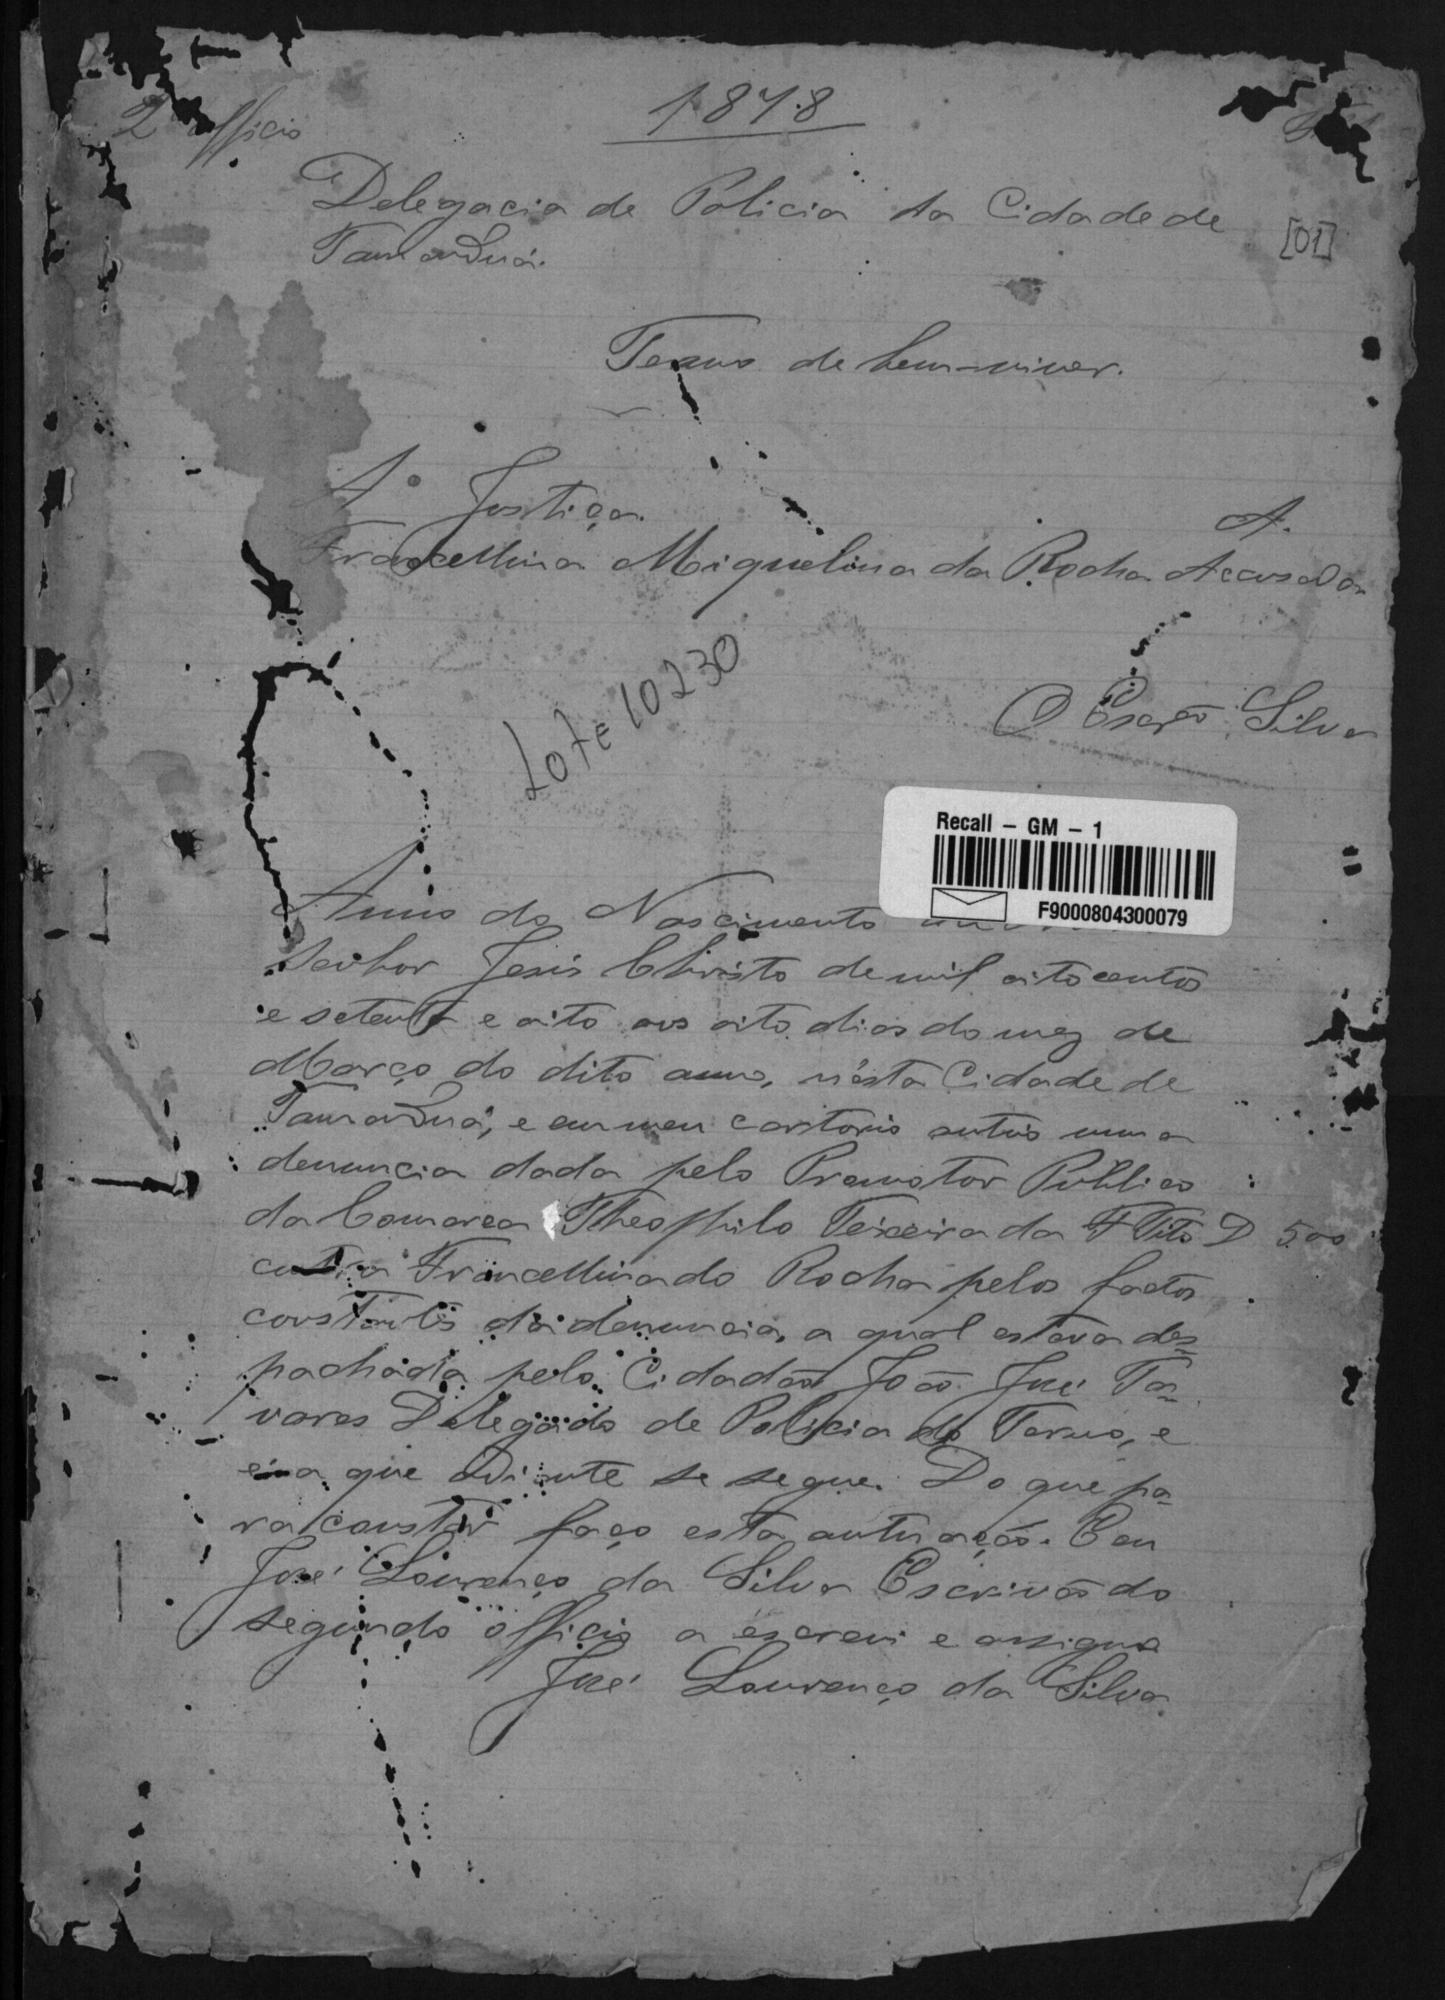 1878
2º officio
Delegacia de Policia da Cidade de
Tamanduá.
[01]
Termo de bem-viver.
A Justiça. A.
Francellina Miquelina da Rocha Accusada
O Escrão Silva
Lote 10230
Recall – GM – 1
F9000804300079
Anno do Nascimento
Senhor Jesus Christo de mil oitocentos
e setenta e oito aos oito dias do mez de
Março do dito anno, n'esta Cidade de
Tamanduá, e em meu cartorio autuo uma
denuncia dada pelo Promotor Publico
da Comarca Theophilo Teixeira da D 500
contra Francellina da Rocha pelos factos
constantes da denuncia, a qual estava des=
pachada pelo Cidadão João José Ta=
vares Delegado de Policia do Termo, e
é a que adiante se segue. Do que pa=
ra constar faço esta autuação. Eu
José Lourenço da Silva Escrivão do
segundo officio a escrevi e assigno
José Lourenço da Silva